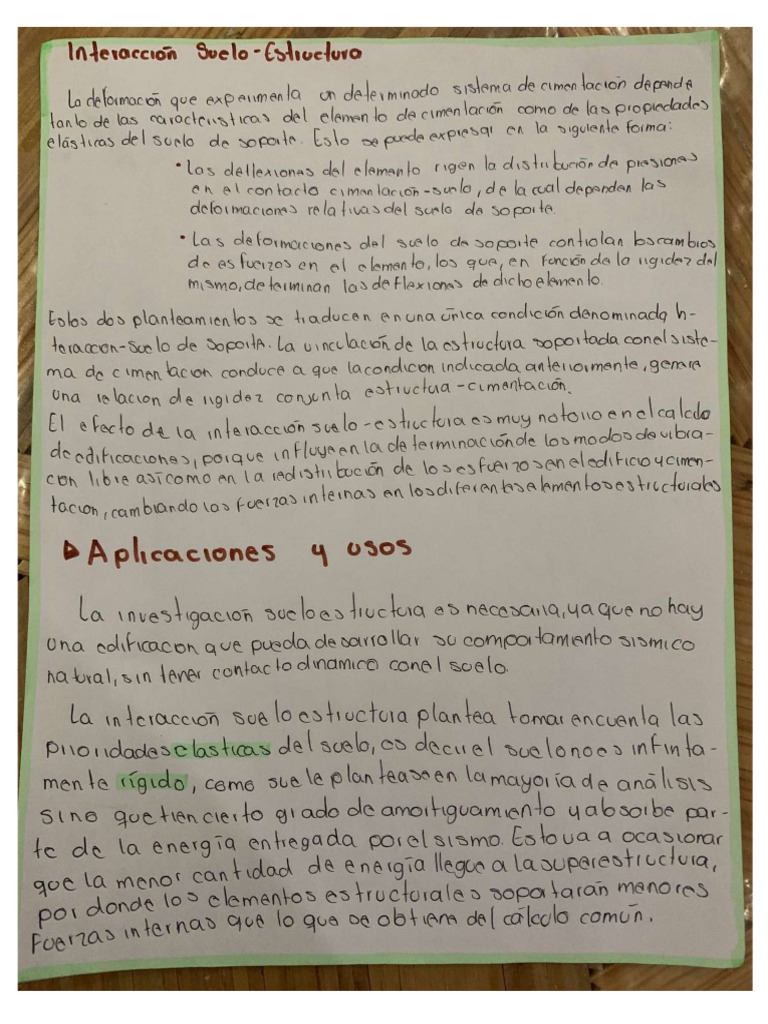 Interacción Suelo-Estructura
La deformación que experimenta un determinado sistema de cimentación depende
tanto de las caracteristicas del elemento de cimentación como de las propiedades
elásticas del suelo de soporte. Esto se puede expresar en la siguiente forma:
• Las deflexiones del elemento rigen la distribución de presiones
en el contacto cimentación-suelo, de la cual dependen las
deformaciones relativas del suelo de soporte.
• Las deformaciones del suelo de soporte controlan los cambios
de esfuerzos en el elemento, los que, en función de la rigidez del
mismo, determinan las deflexiones de dicho elemento.
Estos dos planteamientos se traducen en una única condición denominada In-
teraccion-Suelo de Soporte. La vinculación de la estructura soportada con el siste-
ma de cimentacion conduce a que la condicon indicada anteriormente, genere
una relacion de rigidez conjunta estructura-cimentación.
El efecto de la interacción suelo-estructura es muy notorio en el calculo
de edificaciones, porque influye en la determinación de los modos de vibra-
con libre asi como en la redistribución de los esfuerzos en el edificio y cimen-
tacion, cambiando las fuerzas internas en los diferentes elementos estructurales
▶ Aplicaciones y usos
La investigación suelo estructura es necesaria, ya que no hay
una edificacon que pueda desarrollar su comportamiento sismico
natural, sin tener contacto dinamico con el suelo.
La interacción suelo estructura plantea tomar encuenta las
prioridades elasticas del suelo, es decir el suelo no es infinita-
mente rígido, como suele plantease en la mayoría de análisis
sino que tien cierto grado de amortiguamiento y absorbe par-
te de la energía entregada por el sismo. Esto va a ocasionar
que la menor cantidad de energía llegue a la superestructura,
por donde los elementos estructurales soportarán menores
fuerzas internas que lo que se obtiene del cálculo común.